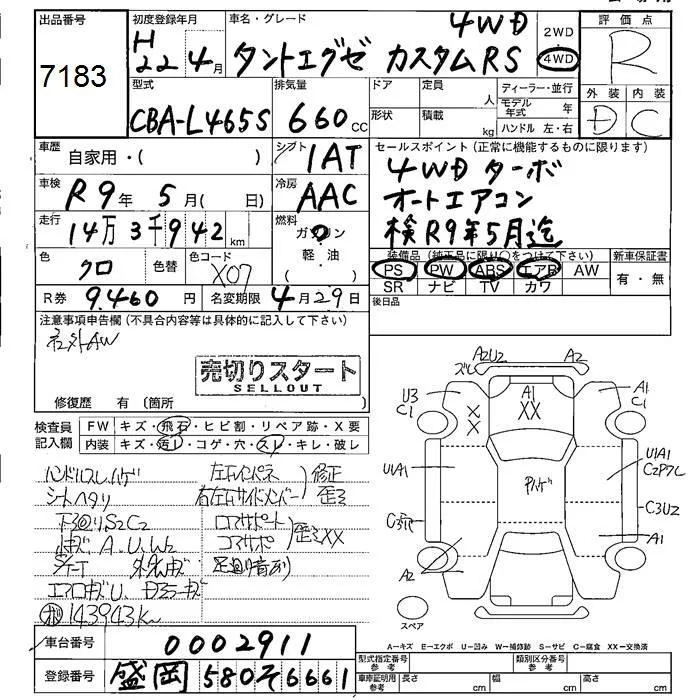 出品番号
7183
初度登録年月
H22 4月
車名・グレード
タントエグゼ カスタムRS 4WD
2WD
4WD
評価点
R
外装 内装
D C
型式
CBA-L465S
排気量
660cc
ドア
定員
人
形状
積載
kg
ディーラー・並行
モデル年式 年
ハンドル 左・右
車歴 自家用・( )
シフト IAT
車検 R9年 5月( 日)
冷房 AAC
走行 14万3千942km
燃料 ガソリン
軽・油
( )
色 クロ
色替
色コード X07
R券 9.460円
名変期限 4月29日
セールスポイント(正常に機能するものに限ります)
4WD ターボ
オートエアコン
検R9年5月迄
装備品(純正品に限り○をつけて下さい)
PS PW ABS エアB AW
SR ナビ TV カワ
新車保証書
有・無
後日品
注意事項申告欄(不具合内容等は具体的に記入して下さい)
社外AW
売切りスタート
SELLOUT
修復歴 有(箇所 )
検査員記入欄
FW キズ・飛石・ヒビ割・リペア跡・X要
内装 キズ・汚レ・コゲ・穴・スレ・キレ・破レ
ハンドルスレ,ハゲ
シートヘタリ
下廻りS2C2
キズ、A.U.W2
左右サイドメンバー
修正
歪ミ
コアサポート
コアサポ
歪ミXX
足廻り音有り
143943k
A2U2 A2
U3
C1
A1
XX
XX
A1
C1
U1A1
U1A1
Pハゲ
C3U2
A1
A2
スペア
A−キズ E−エクボ U−凹み W−補修跡 S−サビ C−腐食 XX−交換済
車台番号 0002911
登録番号 盛岡 580 そ 6661
型式指定番号 参考
類別区分番号 参考
車庫証明用 参考
長さ cm
幅 cm
高さ cm